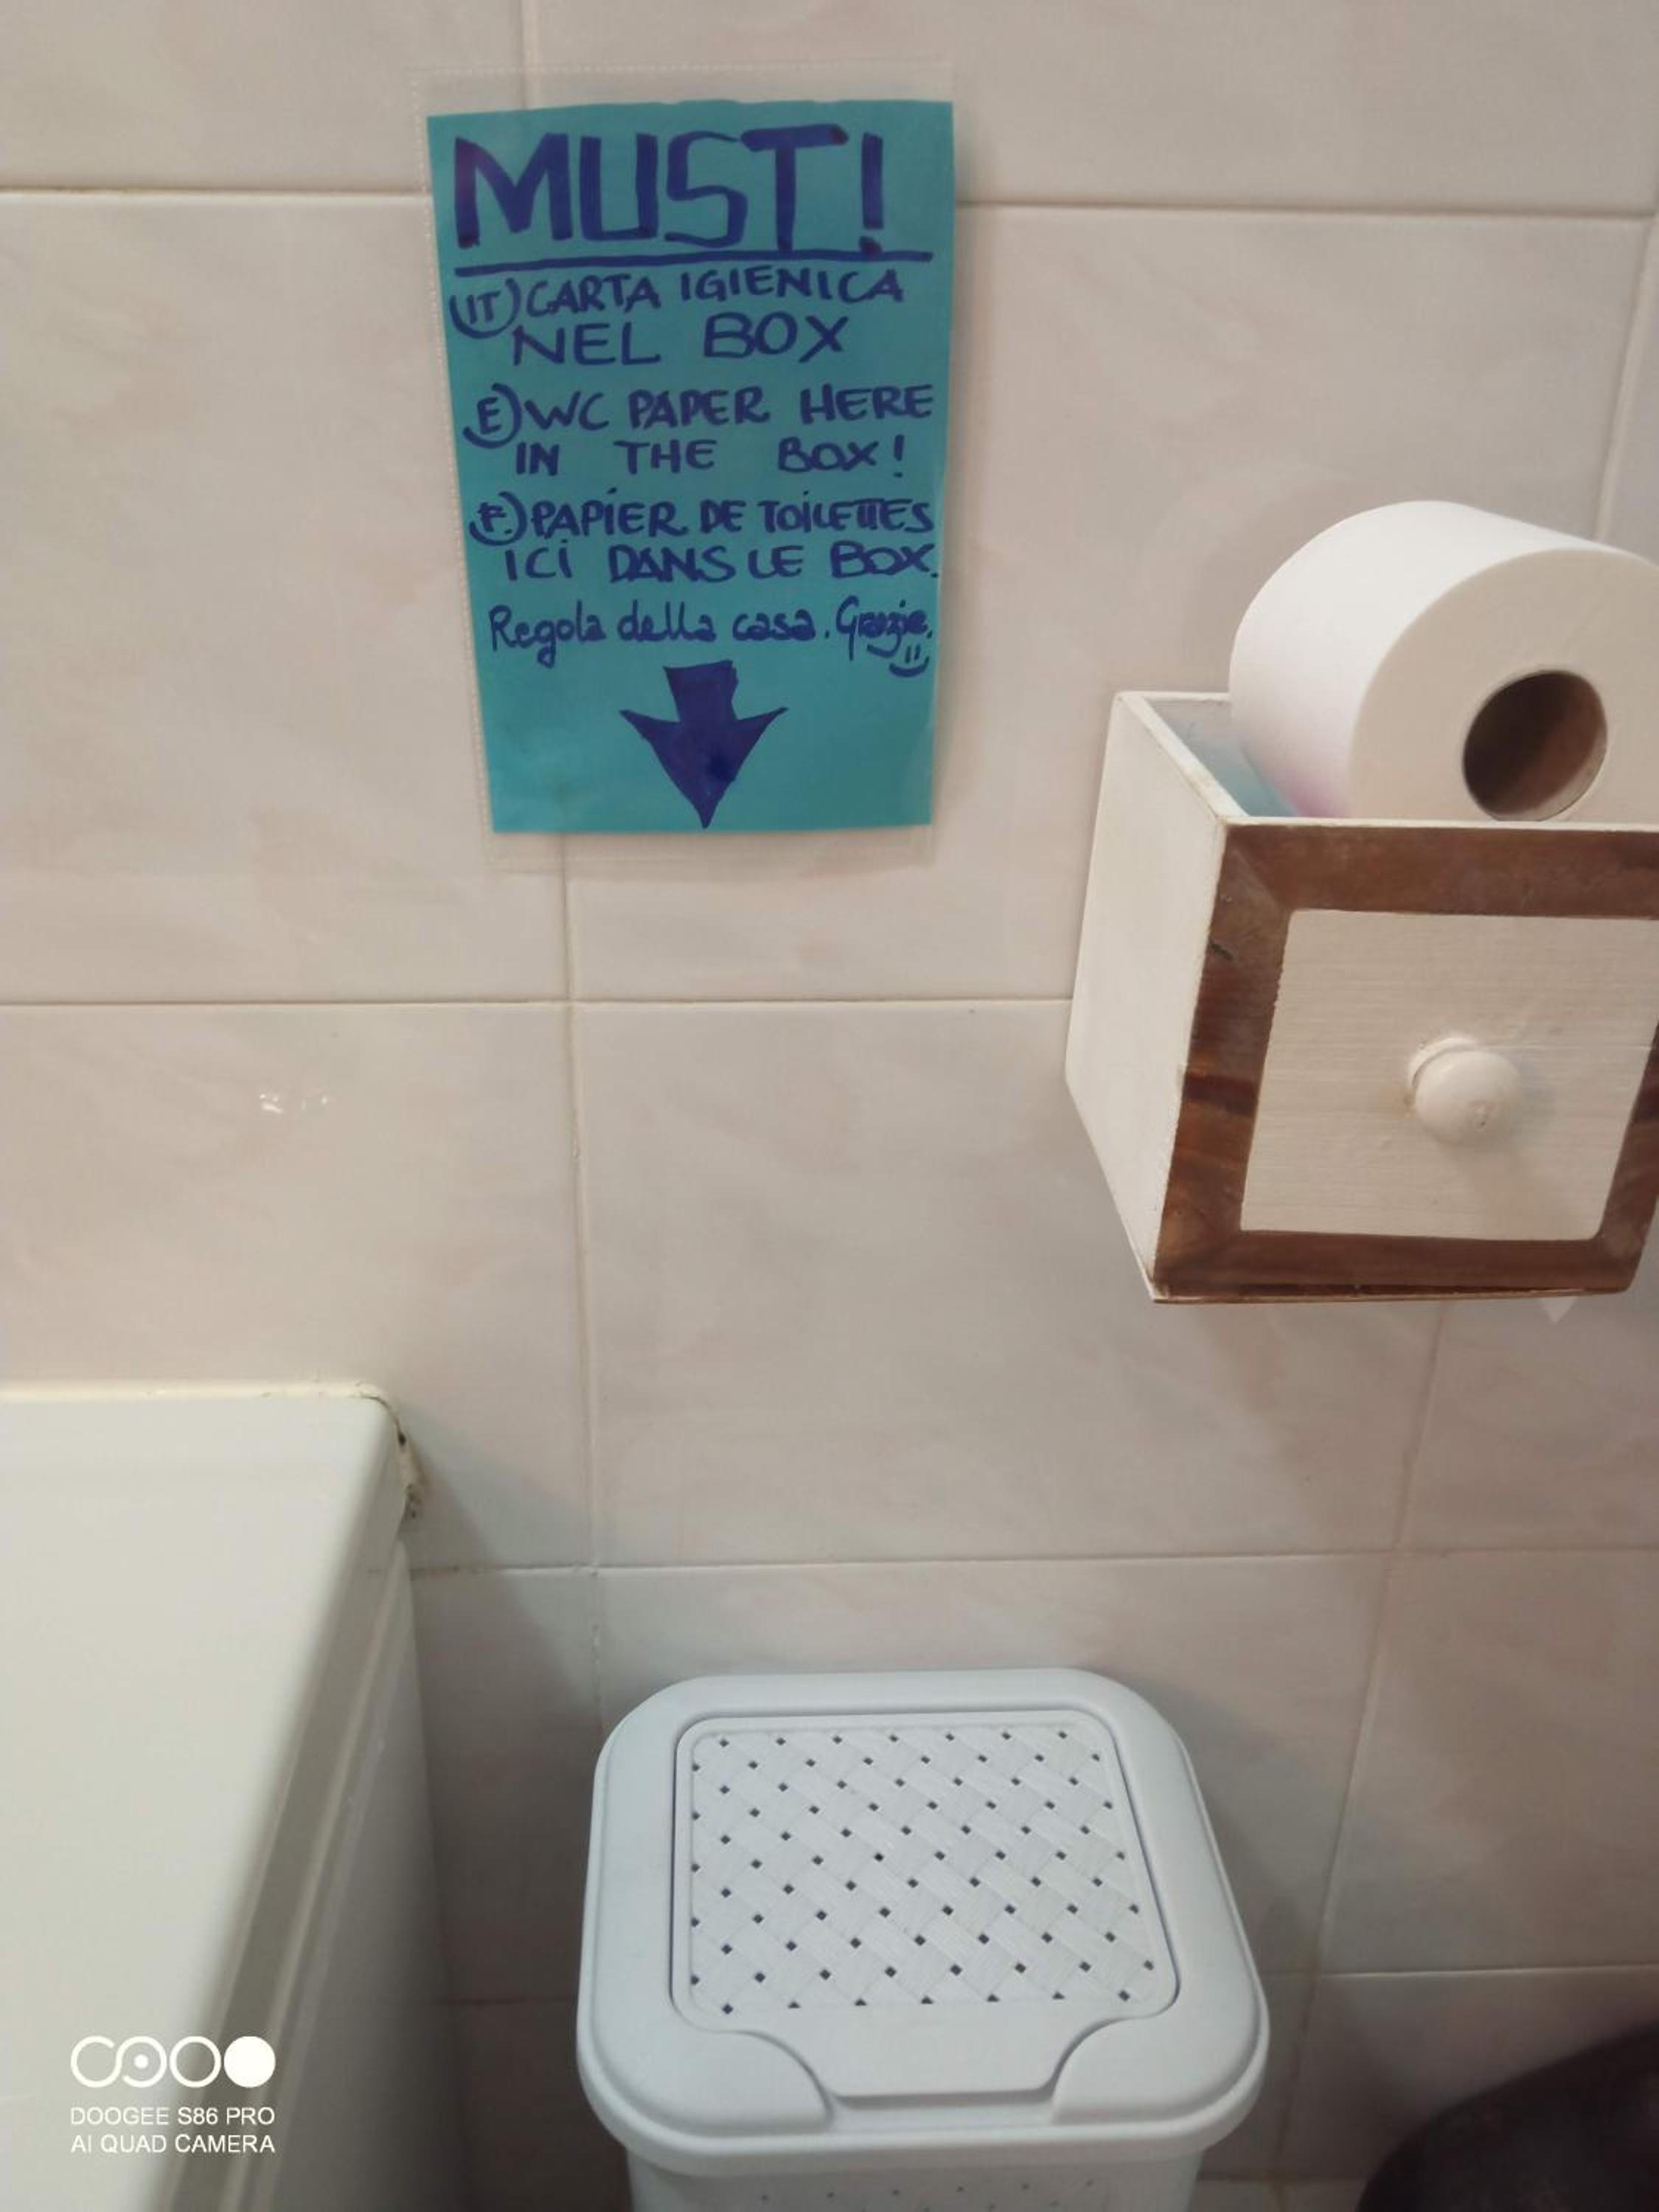 MUST!
IT) CARTA IGIENICA
NEL BOX
E) WC PAPER HERE
IN THE BOX!
F.) PAPIER DE TOILETTES
ICI DANS LE BOX.
Regola della casa. Grazie.
DOOGEE S86 PRO
AI QUAD CAMERA